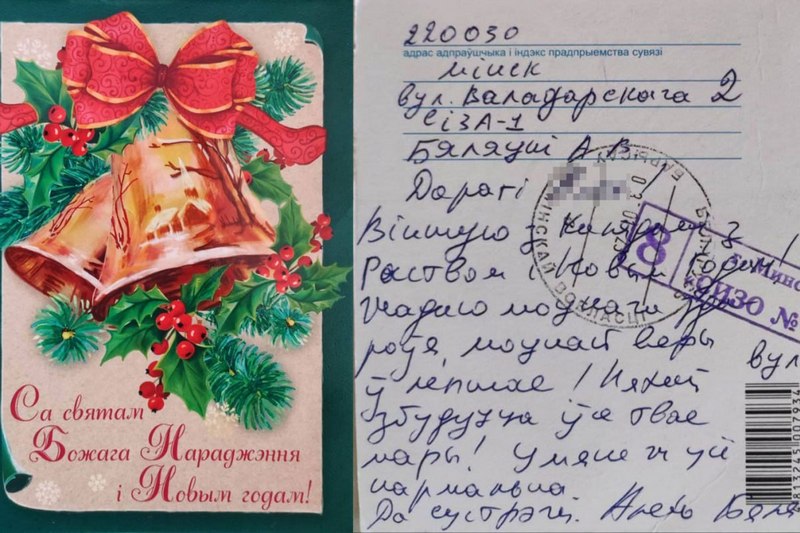 Са святам
Божага Нараджэння
і Новым годам!
220030
адрас адпраўшчыка і індэкс прадпрыемства сувязі
Мінск
вул. Валадарскага 2
СІЗА-1
Бяляцкі А. В.
Дарагі
Віншую з Калядамі, з
Раством і Новым Годам!
Жадаю моцнага зда
роўя, моцнай веры
ў лепшае! Няхай
збудуцца ўсе твае
мары! У мяне
нармальна
Да сустрэчы. Алесь Бяля
МІНСКАЙ ВОБЛАСЦІ
8
г. Минс
СИЗО №
вул
813245 007934